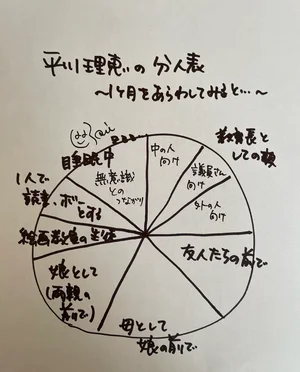 平川理恵の分人表
〜1ヶ月をあらわしてみると…〜
教育長と
しての顔
中の人
向け
議員さん
向け
外の人
向け
友人たちの前で
母として
娘の前で
娘として
(両親の
前で)
絵画教室の生徒
1人で
読書・ボーっ
とする
睡眠中
無意識
との
つながり